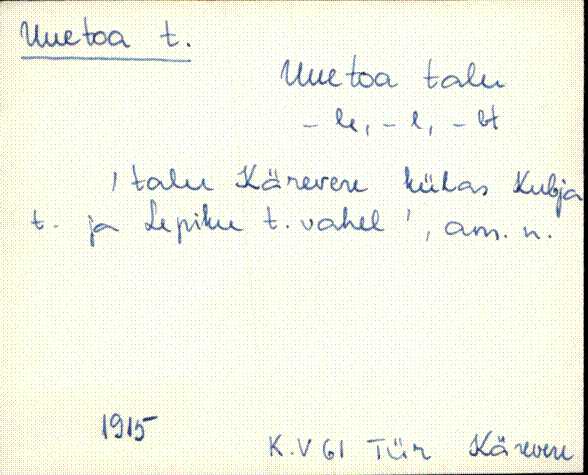 Uuetoa t.
Uuetoa talu
- le, - l, - lt
' talu Kärevere külas Kubja
t. ja Lepiku t. vahel ', am. n.
1915
K.V 61 Tür Kärevere